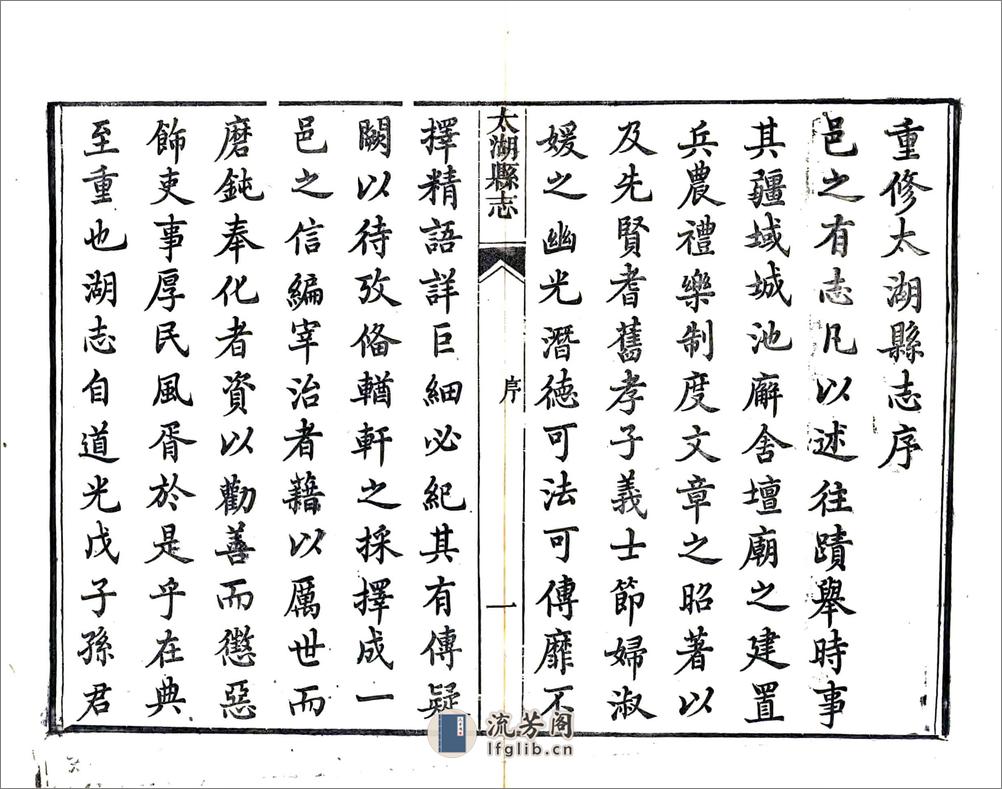 重修太湖縣志序
邑之有志凡以述往蹟舉時事
其疆域城池廨舍壇廟之建置
兵農禮樂制度文章之昭著以
及先賢耆舊孝子義士節婦淑
媛之幽光潛德可法可傳靡不
太湖縣志
序
一
擇精語詳巨細必紀其有傳疑
闕以待攷俻輶軒之採擇成一
邑之信編宰治者藉以厲世而
磨鈍奉化者資以勸善而懲惡
飾吏事厚民風胥於是乎在典
至重也湖志自道光戊子孫君
流芳阁
lfglib.cn